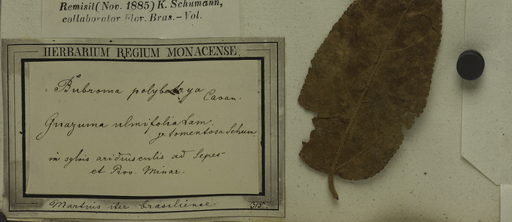 Remisit (Nov. 1885) K. Schumann,
collaborator Flor. Bras.-Vol.
HERBARIUM REGIUM MONACENSE.
Bubroma polybotrya Cavan.
Guazuma ulmifolia Lam.
tomentosa Schum
in sylvis ad Sepes
et Prov. Minar.
Martius iter Brasiliense.